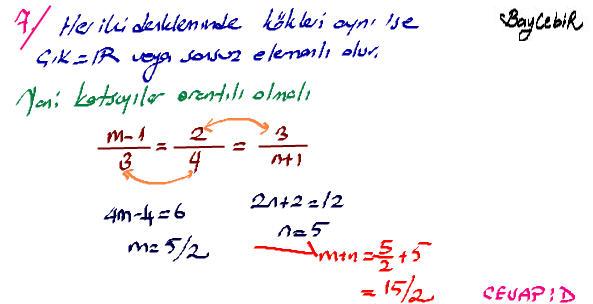 7/ Her iki denklemində kökleri aynı ise
BayCebiR
Ç.K=IR veya sonsuz elemanlı olur.
Yani katsayılar orantılı olmalı
m-1/3 = 2/4 = 3/n+1
4m-4=6
2n+2=12
m=5/2
n=5
m+n=5/2+5
=15/2
CEVAP:D